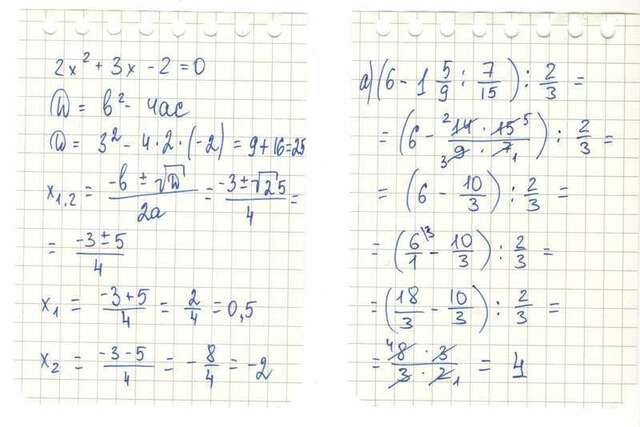 2x² + 3x - 2 = 0
D = b² - 4ac
D = 3² - 4·2·(-2) = 9+16=25
x₁,₂ = (-b ± √D)/(2a) = (-3 ± √25)/4 =
= (-3 ± 5)/4
x₁ = (-3+5)/4 = 2/4 = 0,5
x₂ = (-3-5)/4 = -8/4 = -2
а) (6 - 1 5/9 : 7/15) : 2/3 =
= (6 - (²14 · 15⁵)/(₃9 · 7₁)) : 2/3 =
= (6 - 10/3) : 2/3 =
= (6/1 \³ - 10/3) : 2/3 =
= (18/3 - 10/3) : 2/3 =
= (⁴8 · 3)/(3 · 2₁) = 4